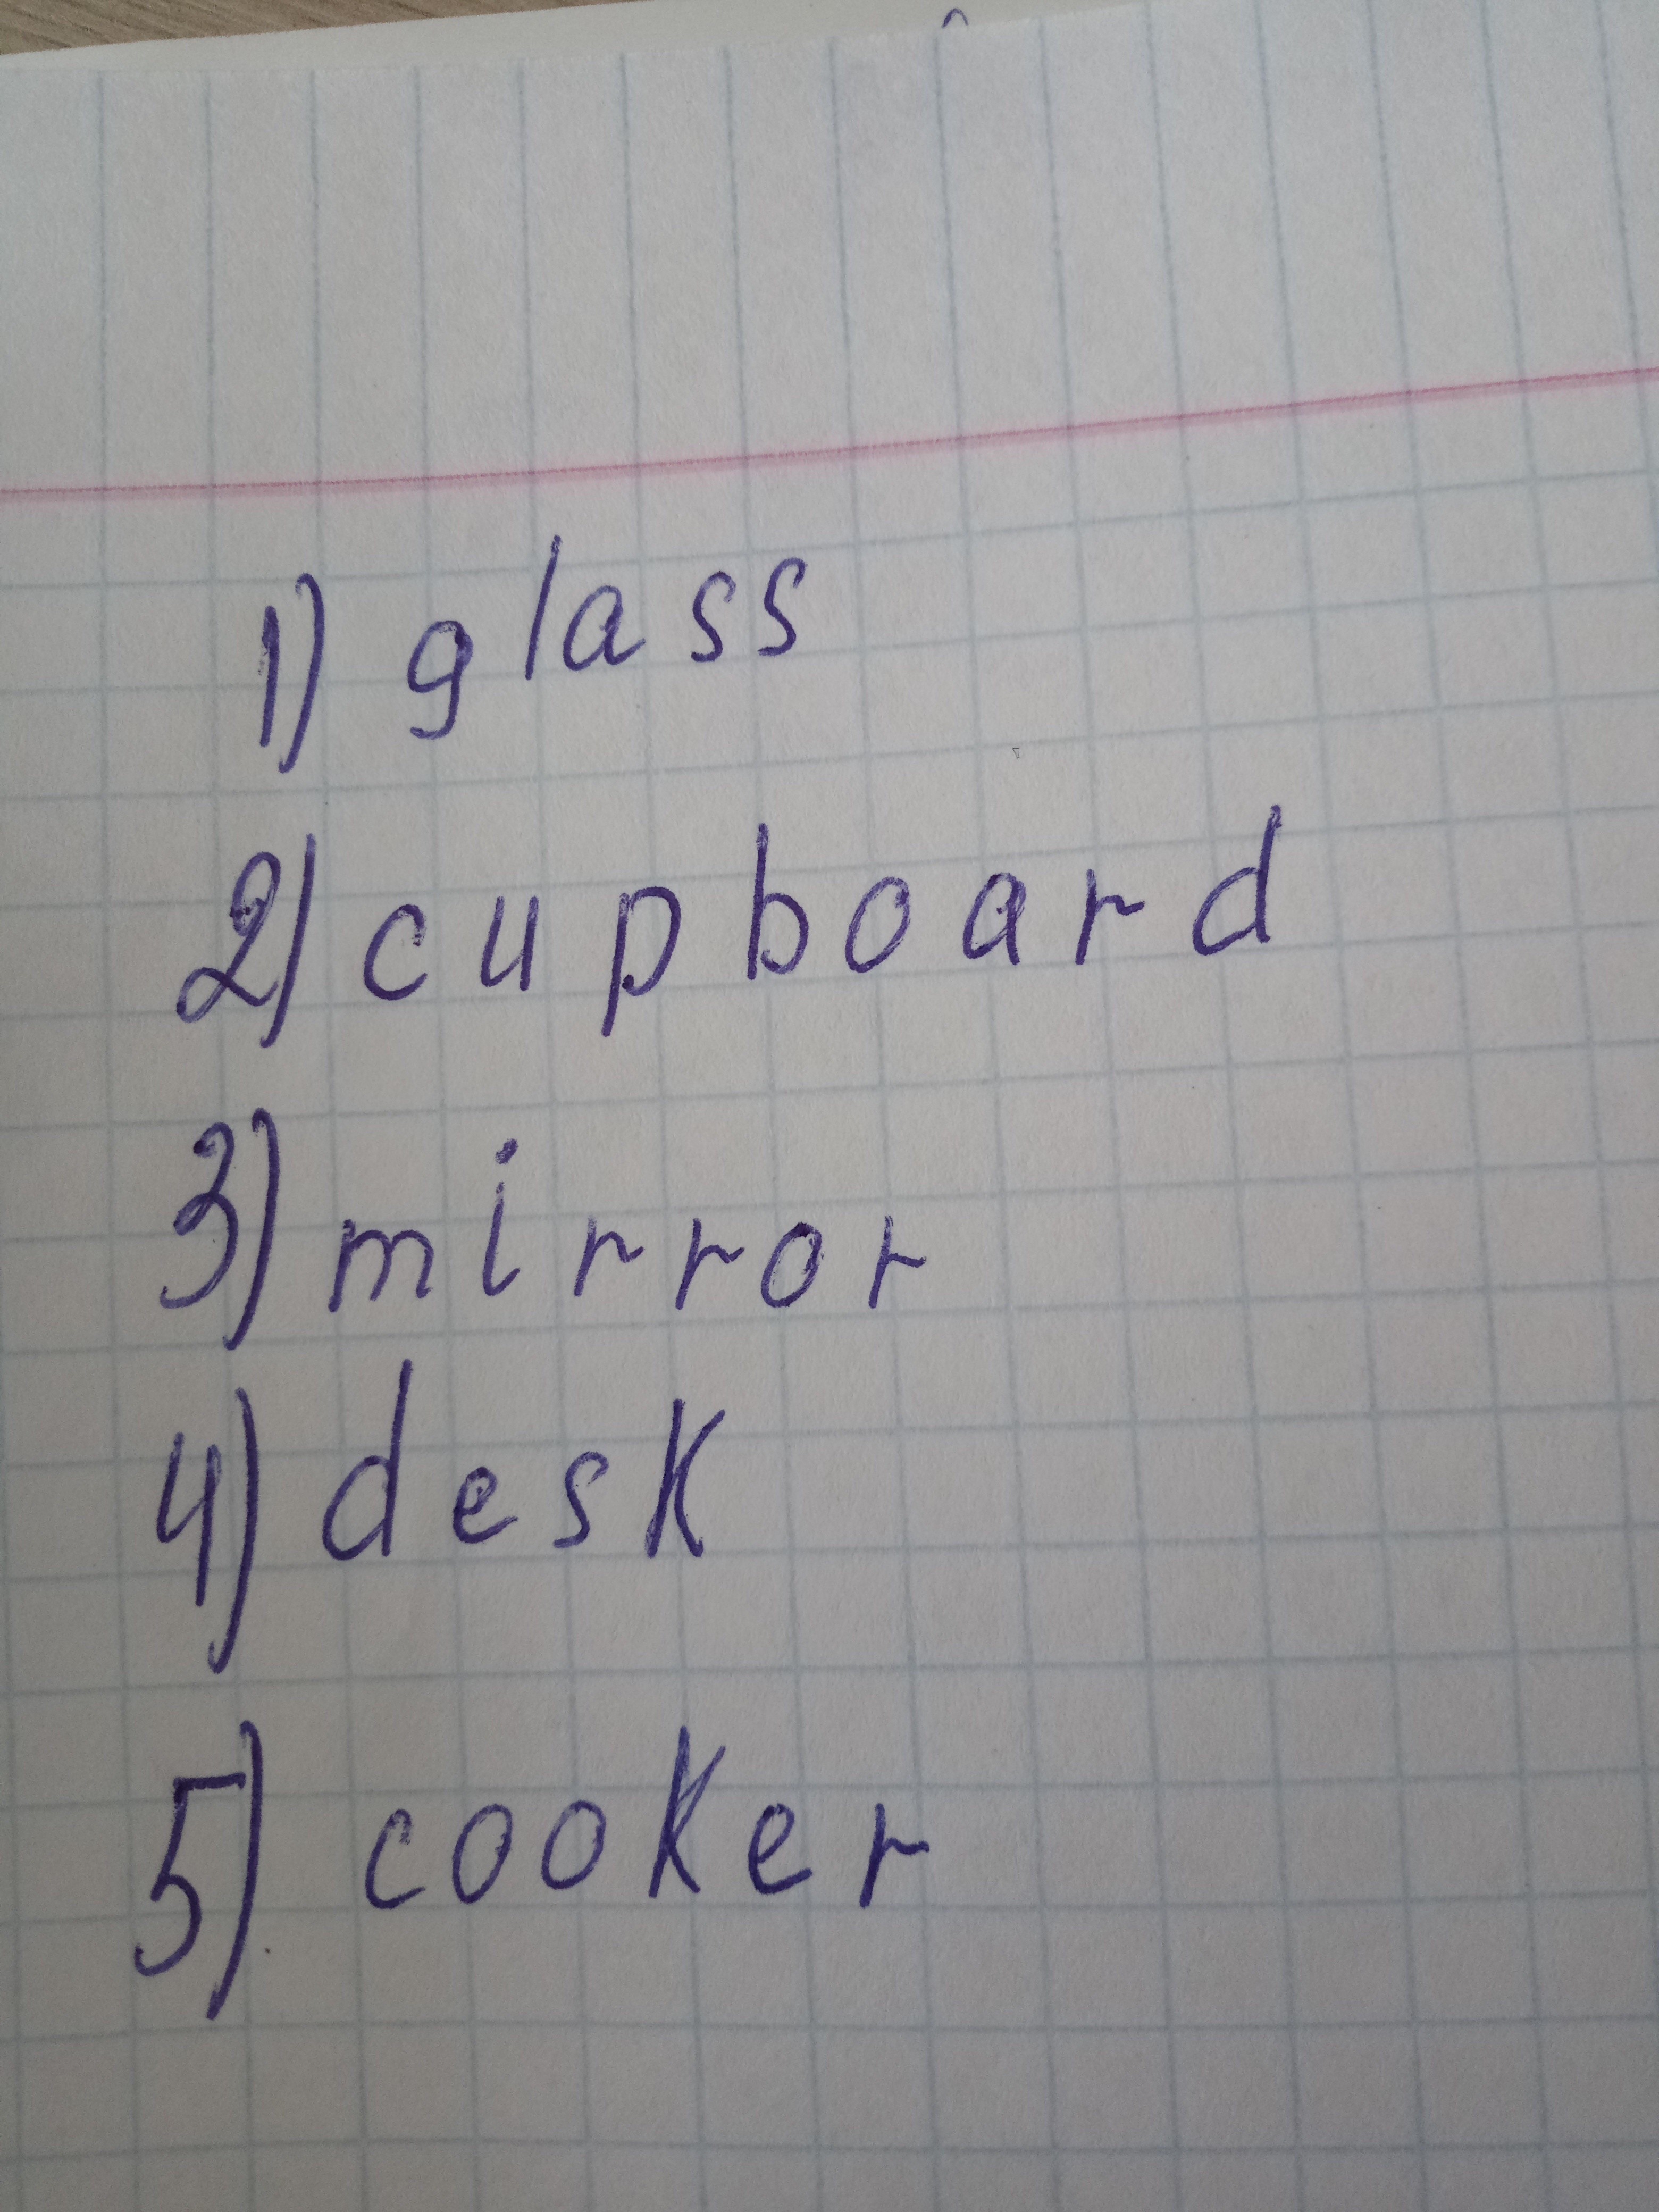 1) glass
2) cupboard
3) mirror
4) desk
5) cooker